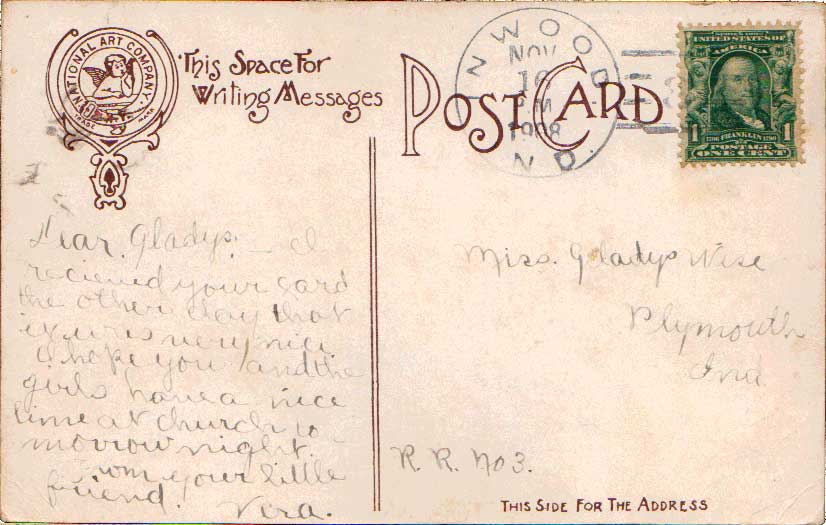 NATIONAL ART COMPANY
TRADE MARK
This Space For
Writing Messages
POST CARD
INWOOD
NOV
10
PM
1908
IND.
UNITED STATES OF
AMERICA
1 FRANKLIN 1
POSTAGE
ONE CENT
Dear Gladys:– I
recieved your card
the other day that
is very nice
I hope you and the
girls have a nice
time at church to
morrow night.
From your little
friend. Vera.
Miss. Gladys Wise
Plymouth
Ind.
R. R. No 3.
THIS SIDE FOR THE ADDRESS